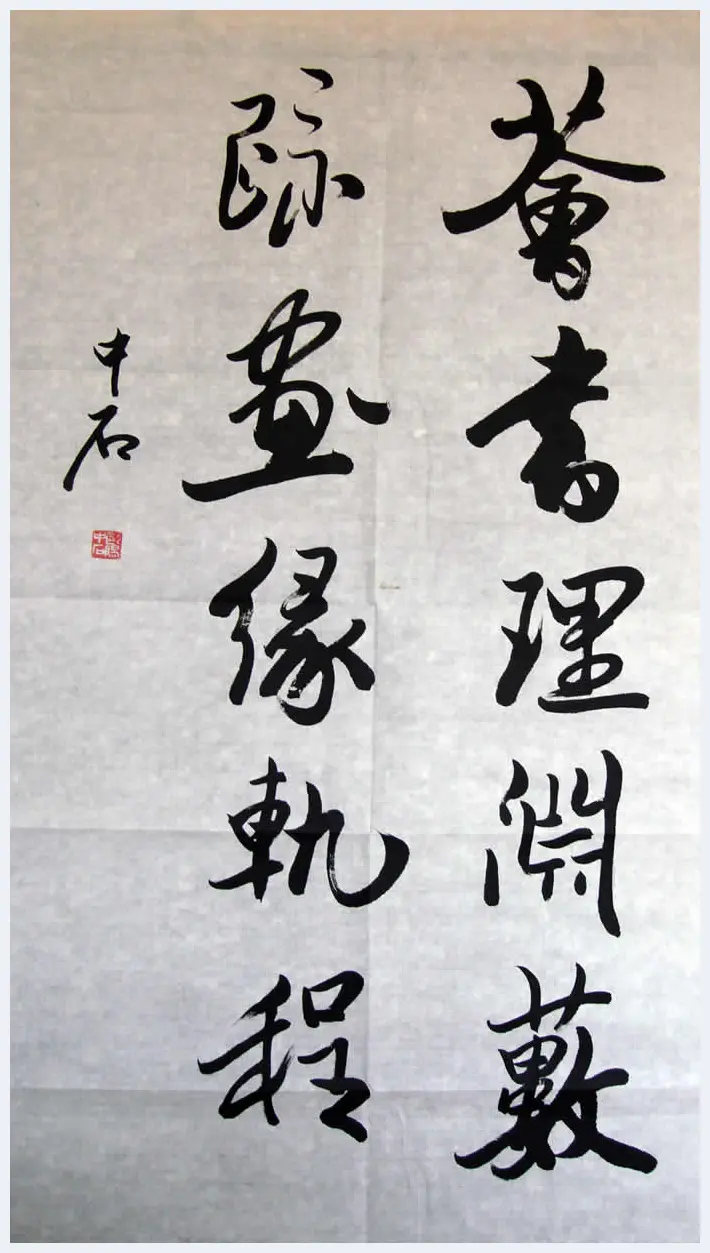 薈書理淵藪
跡畫緣軌程
中石